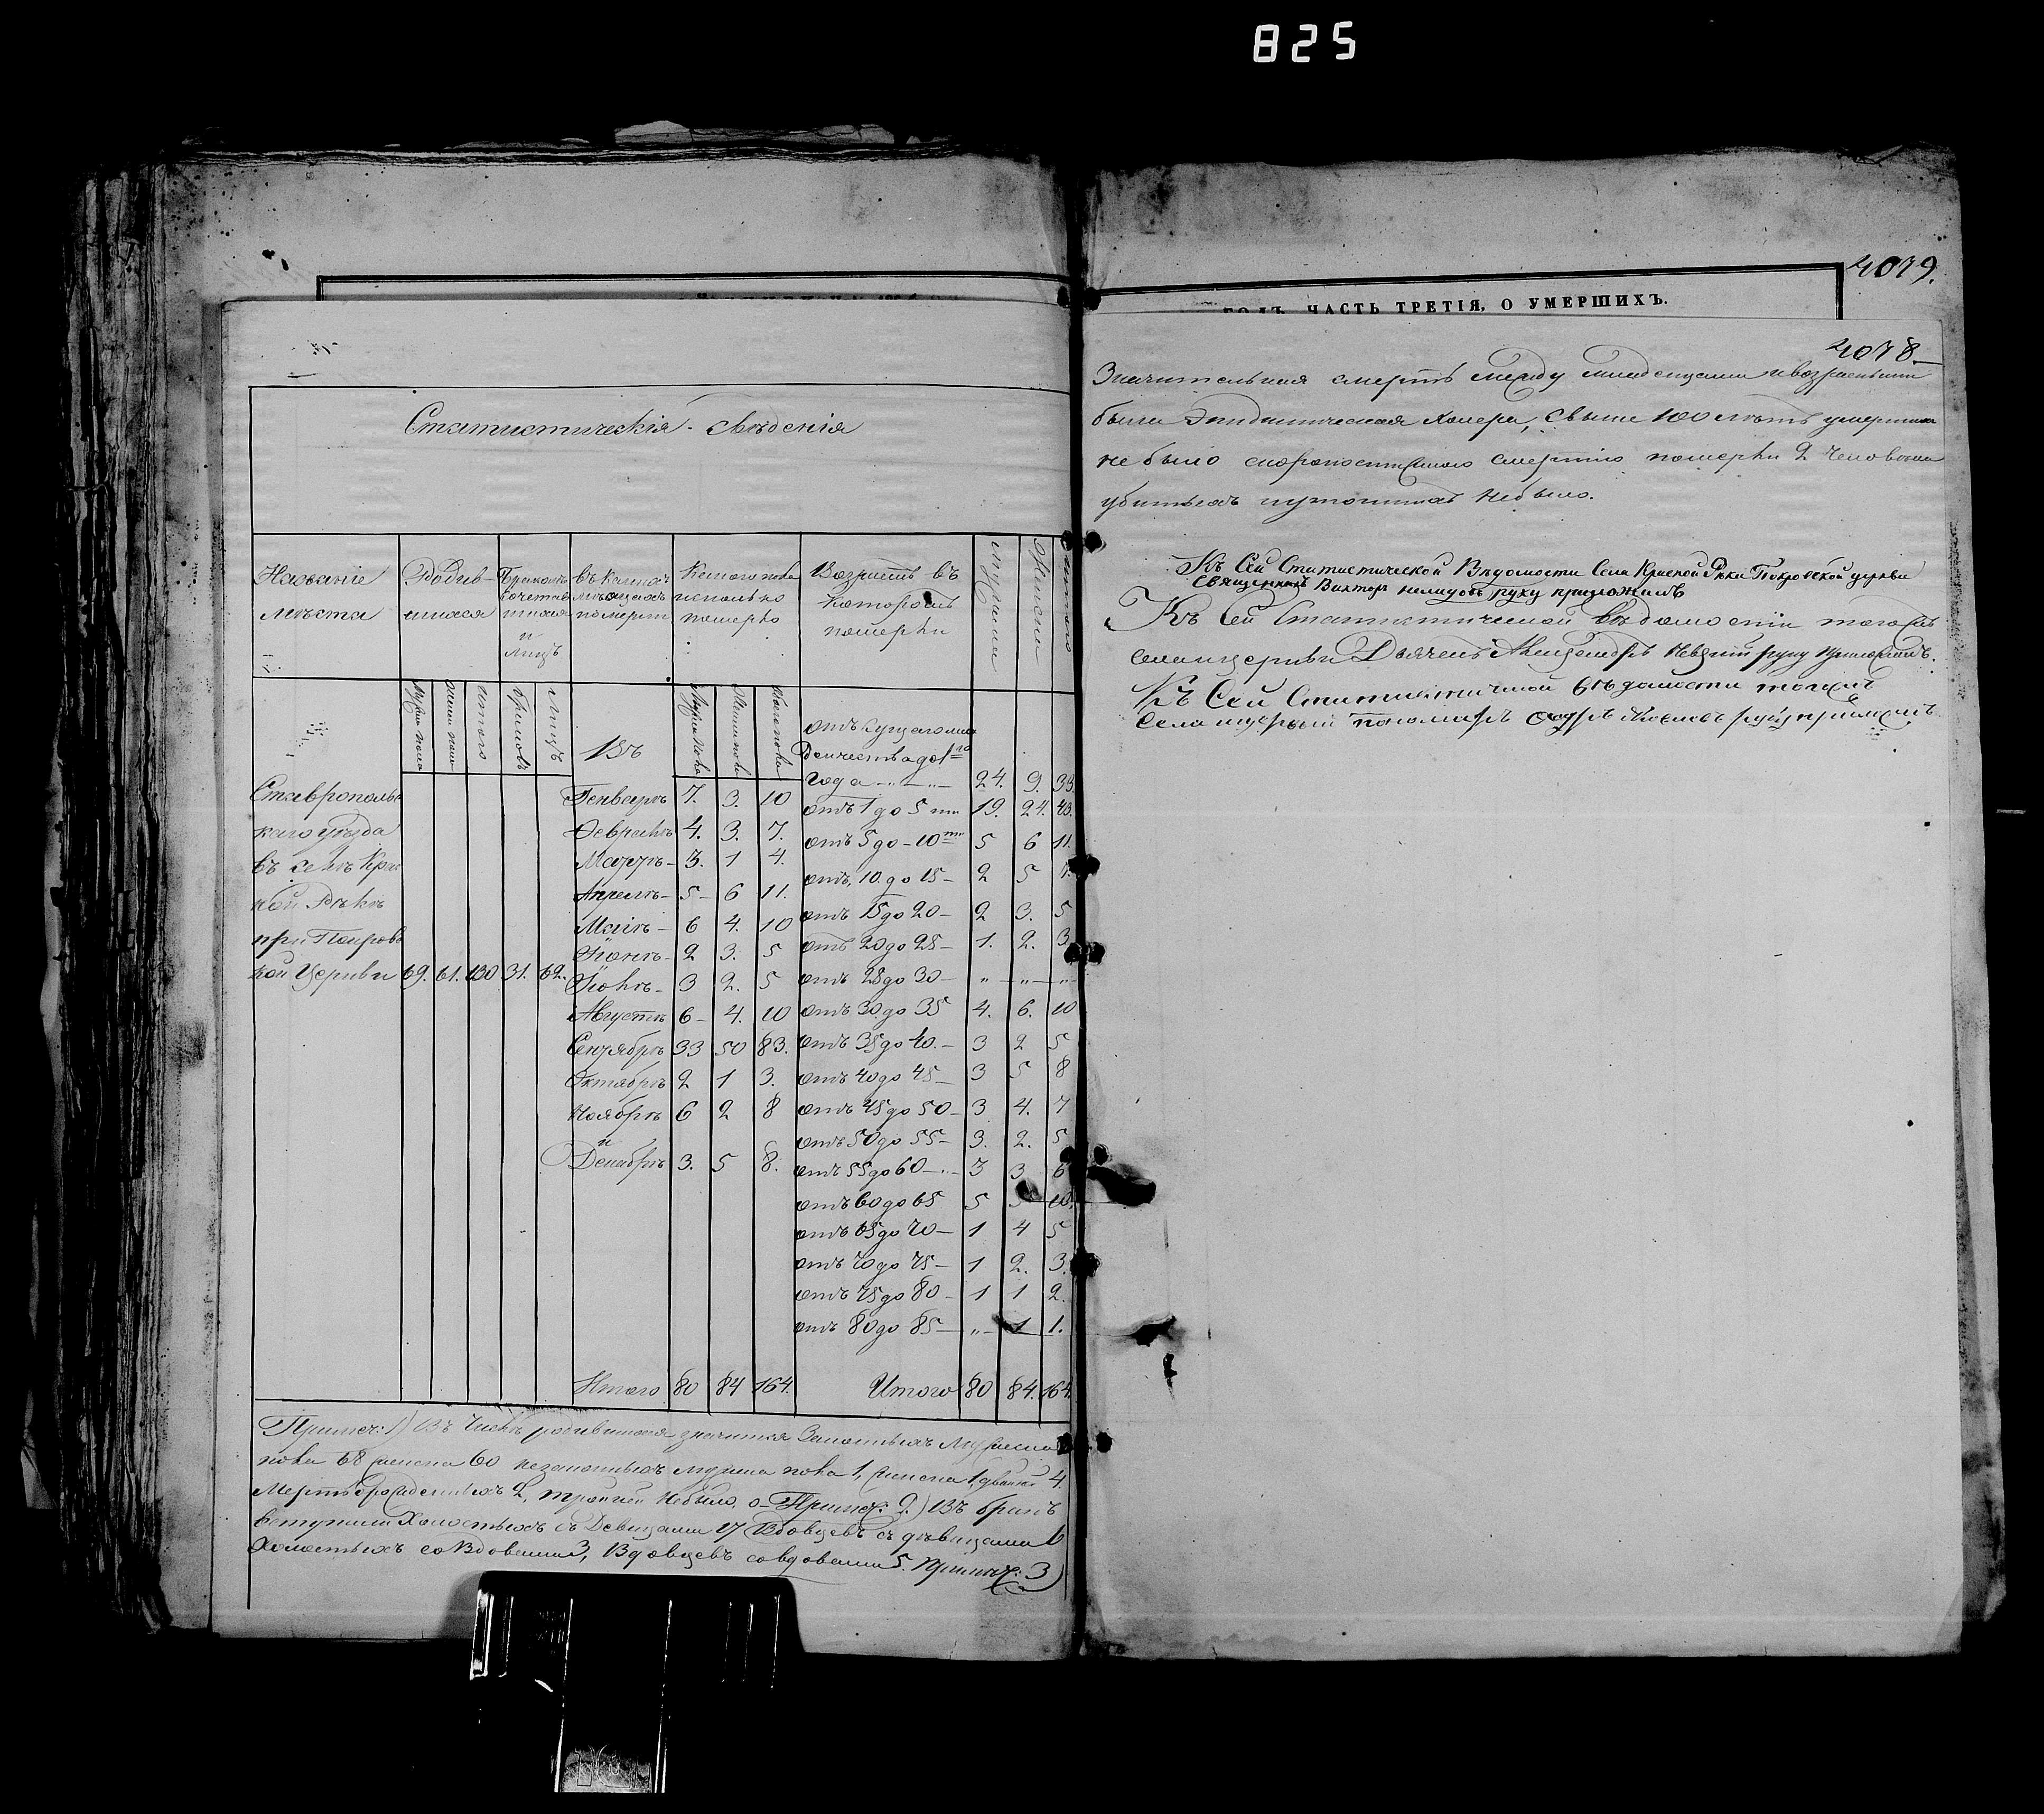 825
4079.
ГОДЪ, ЧАСТЬ ТРЕТІЯ, О УМЕРШИХЪ.
Статистическія - Свѣденія
Названіе мѣста
Родив-шихся
Браковъ сочетав и Лицъ
въ какихъ мѣсяцахъ померли
Котораго пола померло
Возрастъ въ которомъ померли
итого
Итого
Браковъ
Лицъ
Въ
года
24. 9. 33.
Ставропольс
Генварѣ 7. 3. 10
отъ 1 до 5 ти 19. 24. 43.
каго уѣзда
Февралѣ 4. 3. 7.
отъ 5 до - 10 ти 5 6 11.
въ селѣ Крас
Мартѣ - 3. 1 4.
отъ 10. до 15 - 2 5 7.
ной Рѣкѣ
Апрелѣ - 5 - 6 11.
отъ 15 до 20 - 2 3. 5
при Покровс
Маіѣ - 6 4. 10
отъ 20 до 25 - 1. 2. 3.
кой Церкви 69. 61. 130 31. 62.
Іюнѣ - 2 3. 5
отъ 25 до 30 - „ - „ - „
Іюлѣ - 3 2. 5
отъ 30. до 35 4. 6. 10
Августѣ 6 - 4. 10
отъ 35 до 40. - 3 2 5
Сентябрѣ 33 50 83.
отъ 40 до 45 - 3 5 8
Октябрѣ 2 1 3.
отъ 45 до 50 - 3 4. 7
Ноябрѣ 6 2 8
отъ 50 до 55 - 3. 2. 5
и
Декабрѣ 3. 5 8.
отъ 55 до 60 - „ - 3 3 6
отъ 60 до 65 5 5 10.
отъ 65 до 70 - 1 4 5
отъ 70 до 75 - 1 2. 3.
отъ 75 до 80 - 1 1 2.
отъ 80 до 85 - „ - 1 1.
Итого 80 84 164.
Итого 80 84. 164.
Примеч: 1) Въ Числѣ родившихся значится Законныхъ Мужеска
пола 68 женска 60 незаконныхъ мужска пола 1, женска 1, двойней 4
Мертворожденныхъ 2, тройней Небыло. - Примеч: 2.) Въ бракъ
вступили Холостыхъ съ Девицами 17 Вдовцевъ съ дѣвицами 6
Холостыхъ со Вдовами 3, Вдовцевъ со вдовами 5. Примеч: 3)
4078.
Значительная смерть между младенцами и возрастными
была Эпидемическая Холера, Свыше 100 лѣтъ умерших
не было скоропостижною смертію померли 2 Человека
убитыхъ и утопшихъ Небыло.
Къ Сей Статистической Вѣдомости Села Красной Рѣки Покровской церкви
Священникъ Викторъ руку приложилъ
Къ Сей Статистической вѣдомостіи тогожъ
села и церкви Дьячекъ Александръ руку приложилъ.
Къ Сей Статистичиской вѣдомости тогожъ
Села и церкви пономарь руку приложилъ